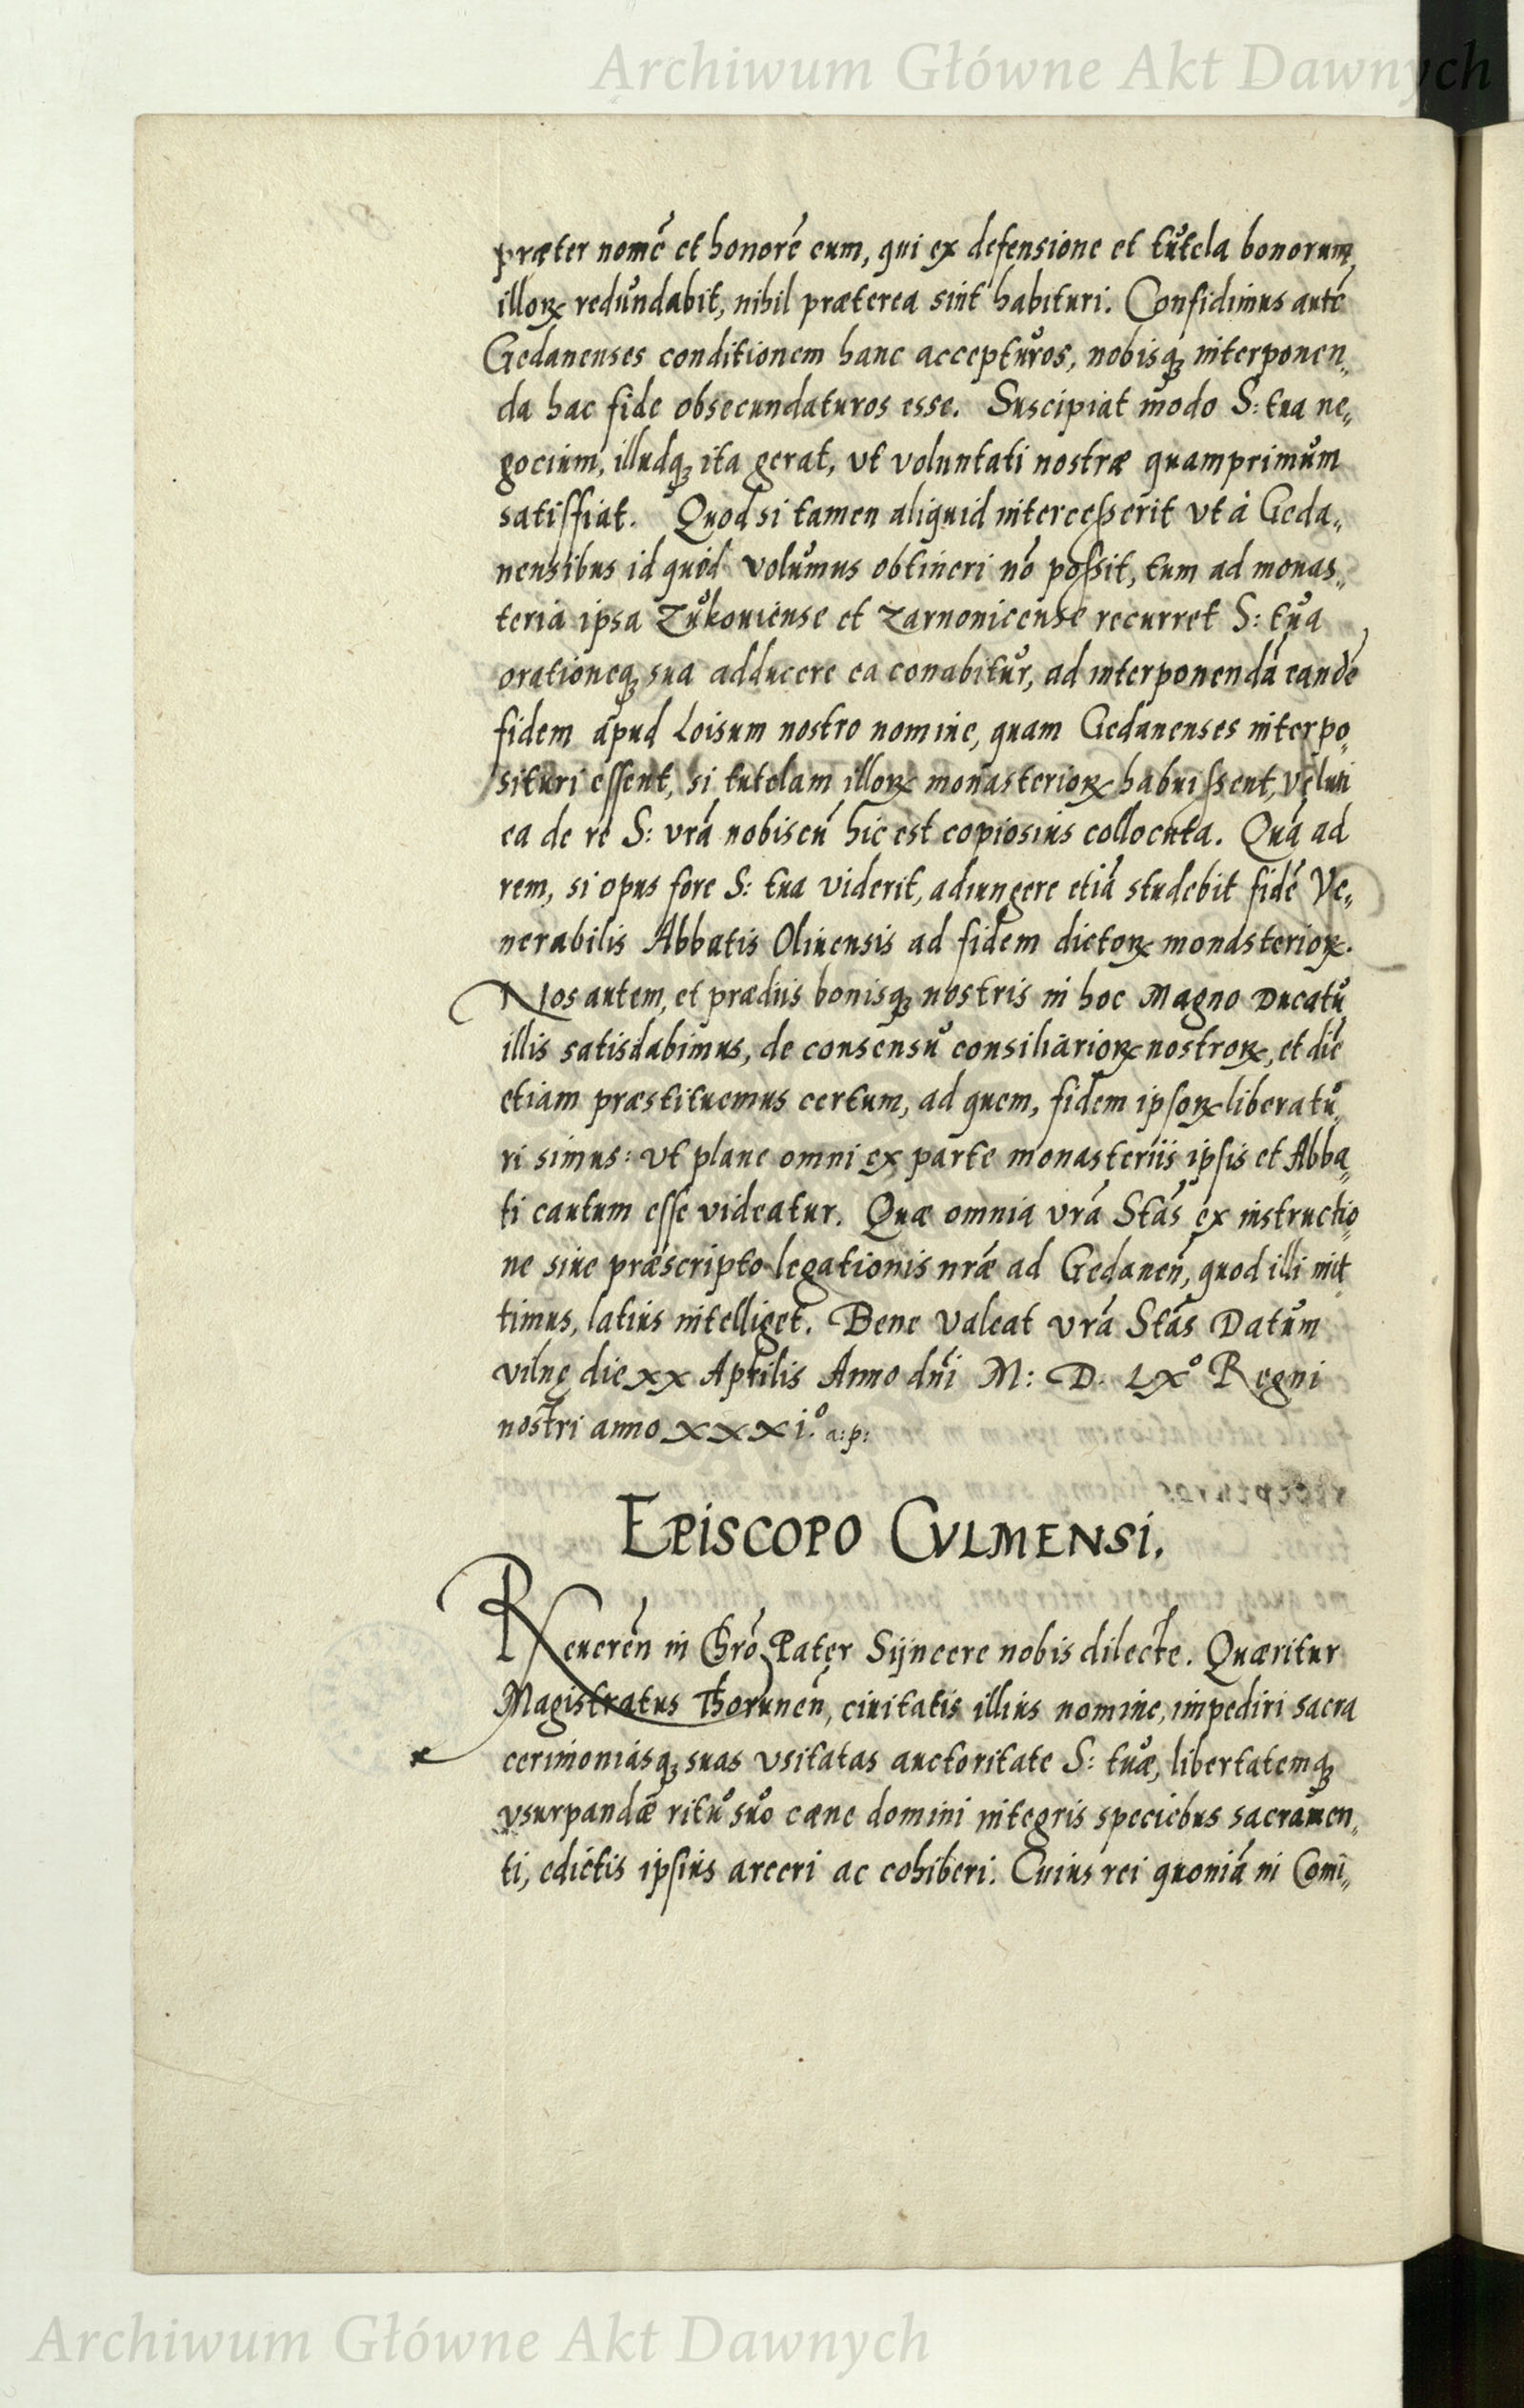 Archiwum Główne Akt Dawnych
præter nomē et honorē eum, qui ex defensione et tutela bonorum
illoꝝ redundabit, nihil præterea sint habituri. Confidimus autē
Gedanenses conditionem hanc accepturos, nobisqꝫ interponen„
da hac fide obsecundaturos esse. Suscipiat modo S: tua ne„
gocium, illudqꝫ ita gerat, ut voluntati nostræ quamprimum
satisfiat. Quod si tamen aliquid intercesserit ut à Geda„
nensibus id quod volumus obtineri nō possit, tum ad monas„
teria ipsa Zukouiense et Zarnonicense recurret S: tua
orationeqꝫ sua adducere ea conabitur, ad interponendā eandē
fidem apud Loisum nostro nomine, quam Gedanenses interpo„
situri essent, si tutelam illoꝝ monasterioꝝ habuissent, veluti
ea de re S: vrā nobiscū hic est copiosius collocuta. Quā ad
rem, si opus fore S: tua viderit, adiungere etiā studebit fidē Ve„
nerabilis Abbatis Oliuensis ad fidem dictoꝝ monasterioꝝ.
Nos autem, et prædiis bonisqꝫ nostris in hoc Magno Ducatu
illis satisdabimus, de consensu consiliarioꝝ nostroꝝ, et diē
etiam præstituemus certum, ad quem, fidem ipsoꝝ liberatu„
ri simus: ut plane omni ex parte monasteriis ipsis et Abba„
ti cautum esse videatur. Quæ omnia vrā Stās ex instructio„
ne siue præscripto legationis nræ ad Gedaneñ, quod illi mit„
timus, latius intelliget. Bene valeat vrā Stās Datum
vilnę die xx Aprilis Anno dñi M: D. LXº Regni
nostri anno xxxi.º a:p:
EPISCOPO CVLMENSI.
Reuereñ in Chrō Pater Sijncere nobis dilecte. Quæritur
Magistratus Thoruneñ, ciuitatis illius nomine, impediri sacra
cerimoniasqꝫ suas vsitatas auctoritate S: tuæ, libertatemqꝫ
vsurpandæ ritu suo cæne domini integris speciebus sacramen„
ti, edictis ipsius arceri ac cohiberi. Cuius rei quoniā in Comi„
Archiwum Główne Akt Dawnych